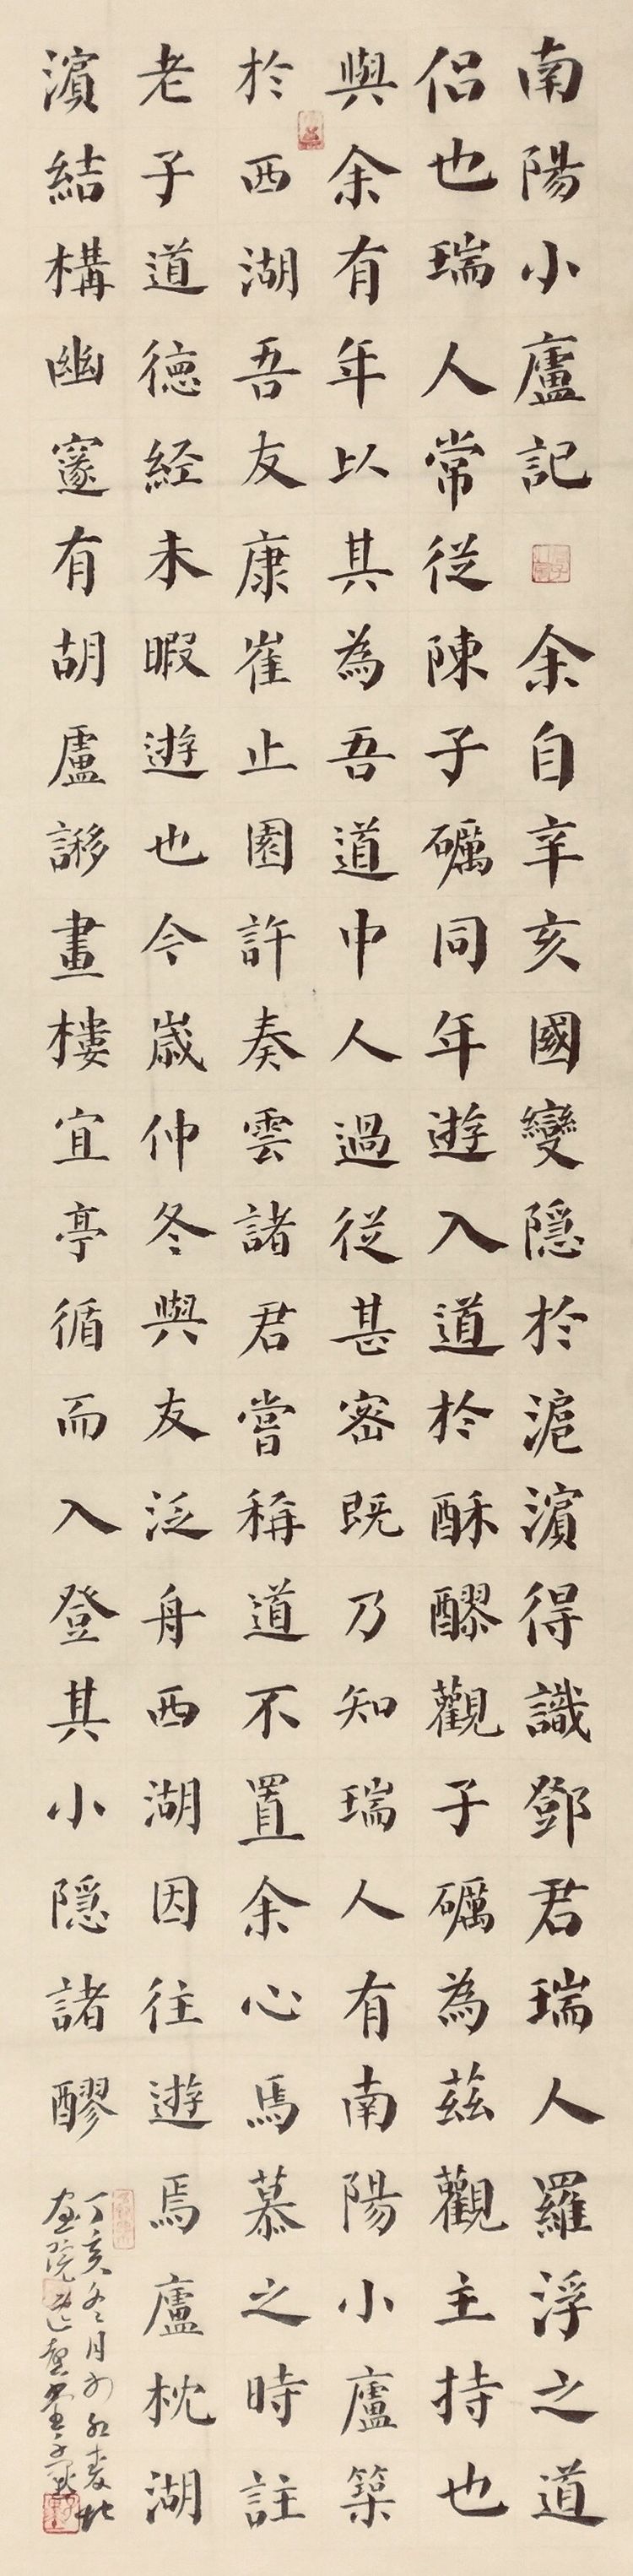 南陽小廬記余自辛亥國變隱於滬濱得識鄧君瑞人羅浮之道
侶也瑞人常從陳子礪同年遊入道於酥醪觀子礪為茲觀主持也
與余有年以其為吾道中人過從甚密既乃知瑞人有南陽小廬築
於西湖吾友康崔止園許奏雲諸君嘗稱道不置余心焉慕之時註
老子道德経未暇遊也今歲仲冬與友泛舟西湖因往遊焉廬枕湖
濱結構幽邃有胡盧謻畫樓宜亭循而入登其小隱諸醪
丁亥冬月於